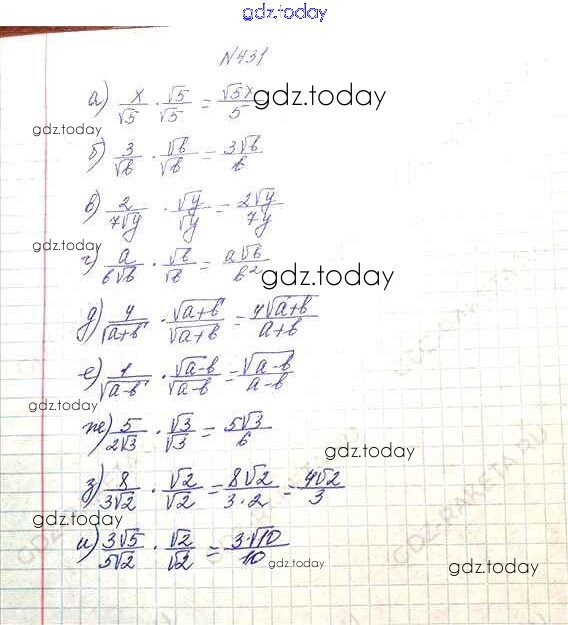 gdz.today
N431
а) x/√5 · √5/√5 = √5x/5 gdz.today
gdz.today
б) 3/√b · √b/√b = 3√b/b
в) 2/7√y · √y/√y = 2√y/7y
gdz.today
г) a/b√b · √b/√b = a√b/b² gdz.today
д) 4/√a+b · √a+b/√a+b = 4√a+b/a+b
GDZ-RAKETA.RU
е) 1/√a-b · √a-b/√a-b = √a-b/a-b
gdz.today
ж) 5/2√3 · √3/√3 = 5√3/6
з) 8/3√2 · √2/√2 = 8√2/3·2 = 4√2/3
gdz.today
GDZ-RAKETA.RU
и) 3√5/5√2 · √2/√2 = 3·√10/10
gdz.today
gdz.today